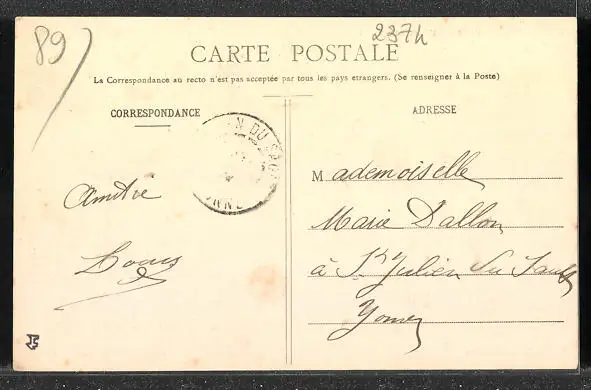 89)
237h
CARTE POSTALE
La Correspondance au recto n'est pas acceptée par tous les pays etrangers. (Se renseigner à la Poste)
CORRESPONDANCE
ADRESSE
N DU SAU
NNE
Mademoiselle
Amitié
Marie Dallon
Louis
à St Julien du Sault
Yonne